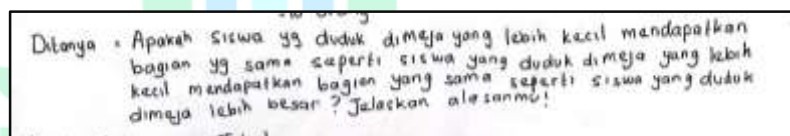 Ditanya : Apakah siswa yg duduk dimeja yang lebih kecil mendapatkan
bagian yg sama seperti siswa yang duduk dimeja yang lebih
kecil mendapatkan bagian yang sama seperti siswa yang duduk
dimeja lebih besar ? Jelaskan alasanmu!